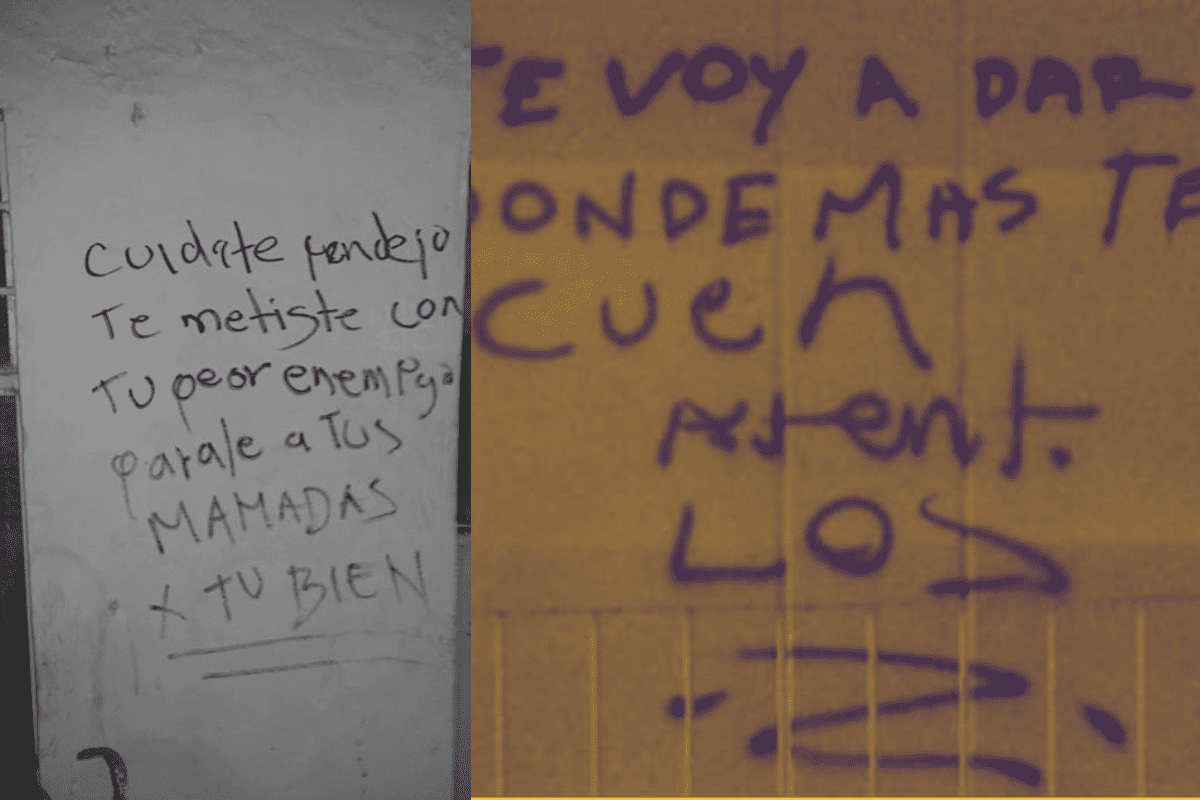 Cuidate pendejo
Te metiste con
TU peor enemigo
parale a TUS
MAMADAS
X TU BIEN
TE VOY A DAR
DONDE MAS TE
CUEN
Atent.
LOS